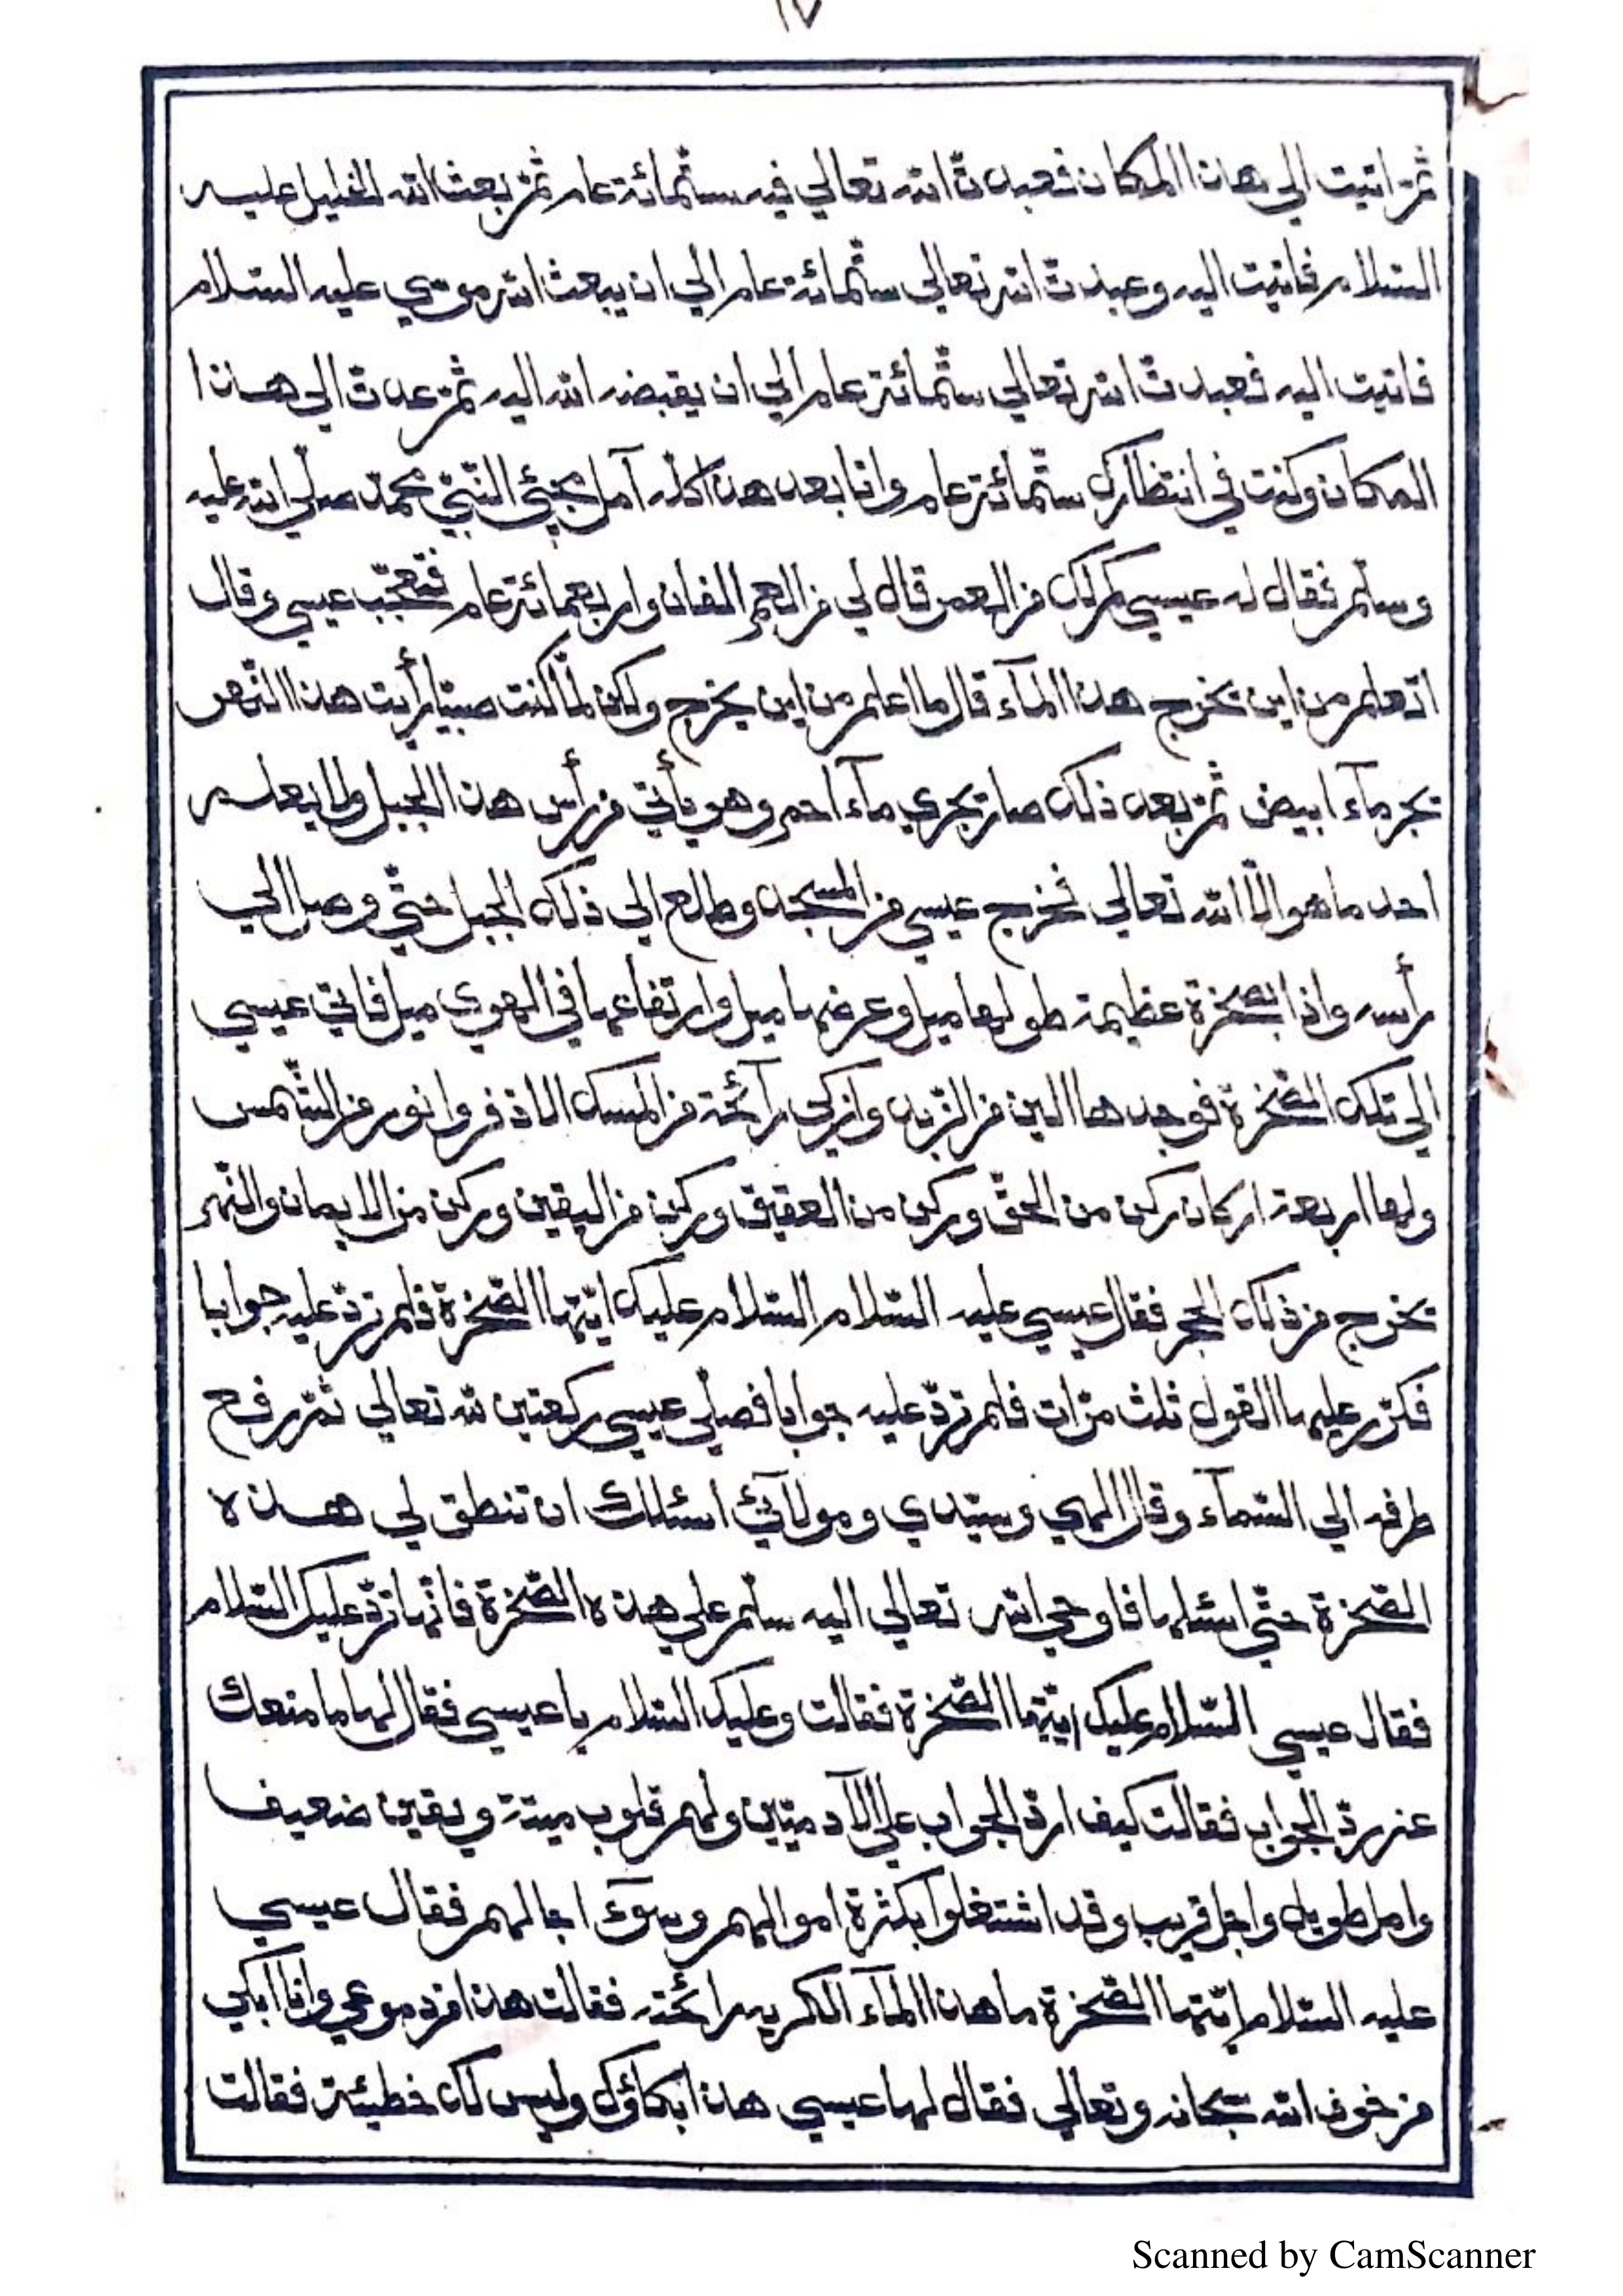 ١٧
ثمّ اتيت الي هذا المكان فعبدتّ الله تعالي فيه ستّمائة عام ثمّ بعث الله الخليل عليه
السّلام فاتيت اليه وعبدتّ الله تعالي ستّمائة عام الي ان يبعث الله موسي عليه السّلام
فاتيت اليه فعبدتّ الله تعالي ستّمائة عام الي ان يقبضه الله اليه ثمّ عدتّ الي هذا
المكان وكنت في انتظارك ستّمائة عام وانا بعد هذا كلّه آمل مجيئ النّبيّ محمّد صلّي الله عليه
وسلّم فقال له عيسي كم لك من العمر قال لي من العمر الفان واربعمائة عام فتعجّب عيسي وقال
اتعلم من اين يخرج هذا المآء قال ما اعلم من اين يخرج ولكن لمّا كنت صبيّا رأيت هذا النّهر
يجر مآء ابيض ثمّ بعد ذلك صار يجري مآء احمر وهو يأتي من رأس هذا الجبل ولا يعلم
احد ما هو الّا الله تعالي فخرج عيسي من المسجد وطلع الي ذلك الجبل حتّي وصل الي
رأسه واذا بصخرة عظيمة طولها ميل وعرضها ميل وارتفاعها في الهوي ميل فاتي عيسي
الي تلك الصّخرة فوجدها الين من الزّبد وازكي رآئحة من المسك الاذفر وانور من الشّمس
ولها اربعة اركان ركن من الحقّ وركن من العقيق وركن من اليقين وركن من الايمان والنّهر
يخرج من ذلك الحجر فقال عيسي عليه السّلام السّلام عليك ايّتها الصّخرة فلم تردّ عليه جوابا
فكرّر عليها القول ثلث مرّات فلم تردّ عليه جوابا فصلّي عيسي ركعتين لله تعالي ثمّ رفع
طرفه الي السّمآء وقال الهي وسيّدي ومولآئي اسئلك ان تنطق لي هذه
الصّخرة حتّي اسئلها فاوحي الله تعالي اليه سلّم علي هذه الصّخرة فانّها تردّ عليك السّلام
فقال عيسي السّلام عليك ايّتها الصّخرة فقالت وعليك السّلام يا عيسي فقال لها ما منعك
عن ردّ الجواب فقالت كيف اردّ الجواب علي الآدميّين ولهم قلوب ميتة ويقين ضعيف
وامل طويل واجل قريب وقد اشتغلوا بكثرة اموالهم وسوٓء اجالهم فقال عيسي
عليه السّلام ايّتها الصّخرة ما هذا المآء الكريه رائحته فقالت هذا من دموعي وانا ابكي
من خوف الله سبحانه وتعالي فقال لها عيسي هذا ابكاؤك وليس لك خطيئة فقالت
Scanned by CamScanner